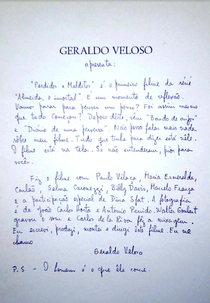 GERALDO VELOSO
apresenta:
"Perdidos e Malditos" é o primeiro filme da série
"Almeida, o imortal". É um momento de reflexão.
Vamos parar para pensar um pouco? Foi assim mesmo
que tudo começou? Depois deste, virá "Bando de anjos"
e "Diário de uma perversa". Não posso falar mais nada
sôbre meu filme. Tudo que tinha para dizer está nele.
O filme está na tela. Se não entenderem, pior para
vocês.
Fiz o filme com Paulo Villaça, Maria Esmeralda,
Carlão, Selma Caronezzi, Billy Davis, Marcelo França
e a participação especial de Dina Sfat. A fotografia
é de João Carlos Horta e Antonio Penido. Walter Goulart
gravou o som e Carlos de la Riva fêz a mixagem.
Eu escrevi, produzi, montei e dirigi êste filme. Eu me
chamo
Geraldo Veloso
P.S - O homem é o que êle come.